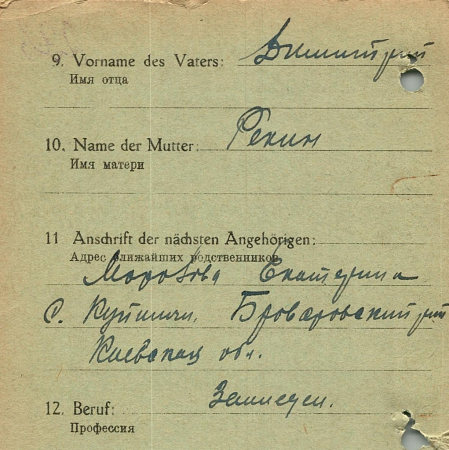 9. Vorname des Vaters: Димитрий
Имя отца
10. Name der Mutter: Рекин
Имя матери
11 Anschrift der nächsten Angehörigen:
Адрес ближайших родственников
Морозова Екатерина
с. Броваровский р-н
Киевская обл.
12. Beruf: Земледел.
Профессия